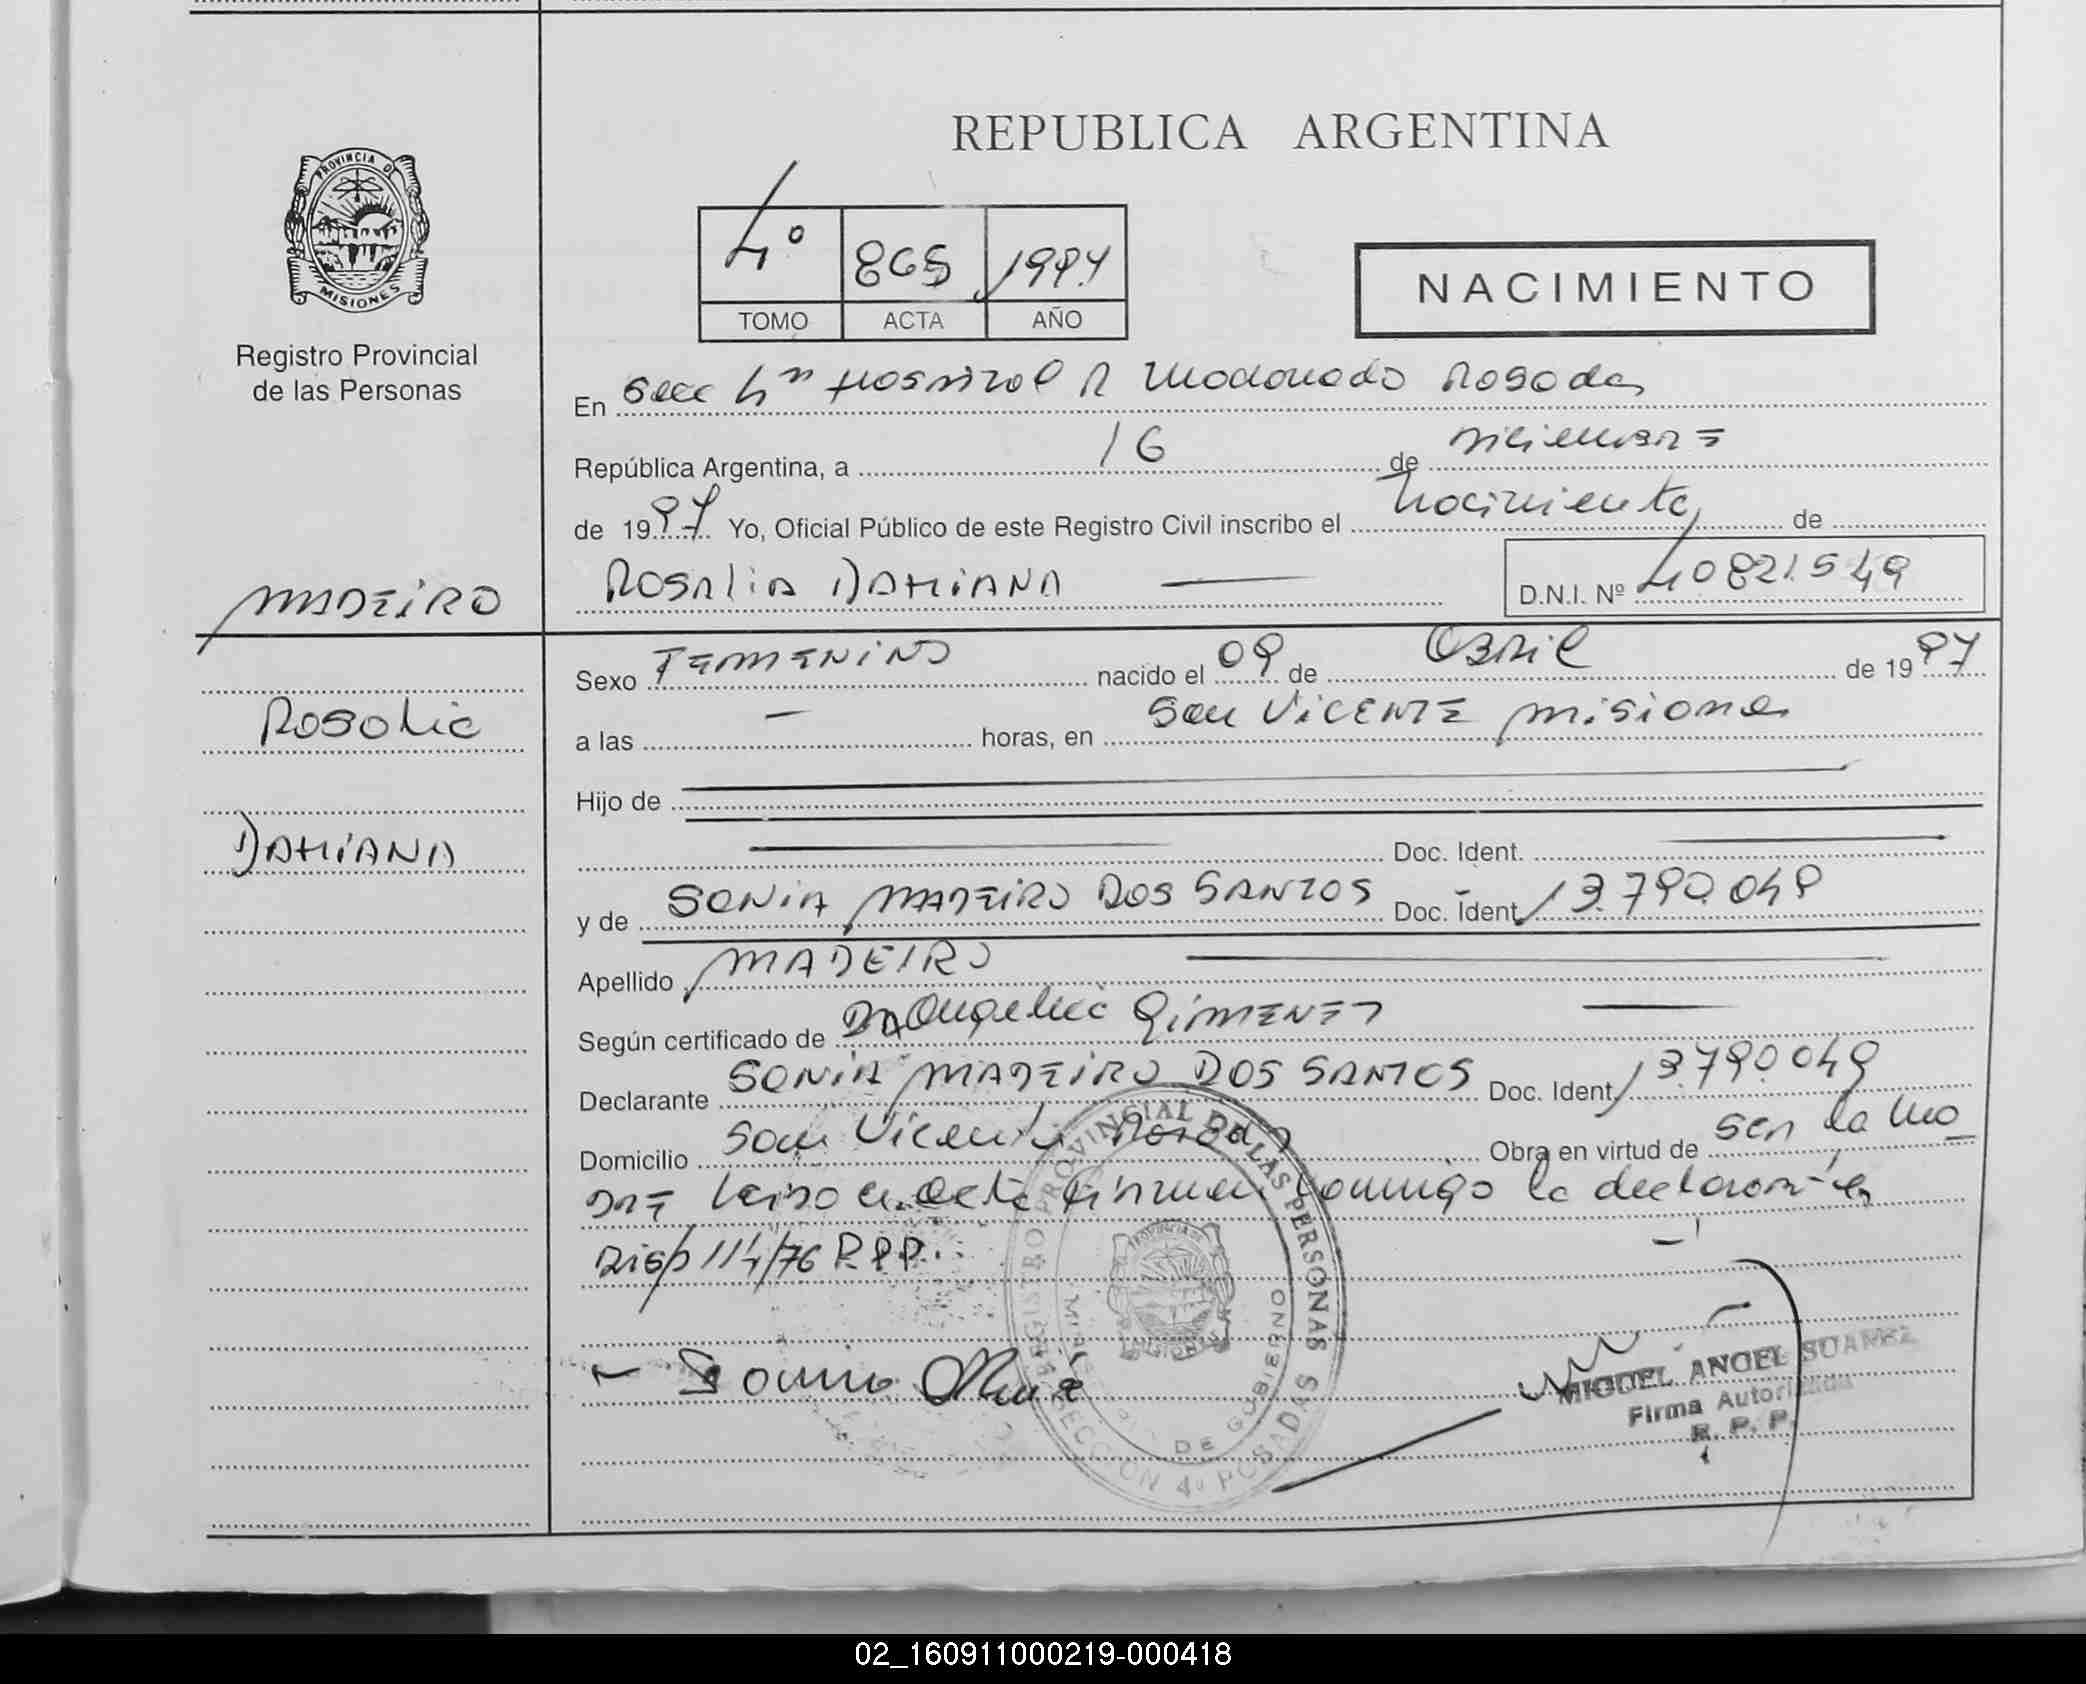 REPUBLICA ARGENTINA
PROVINCIA DE
MISIONES
Registro Provincial
de las Personas
4º 865 1997
TOMO ACTA AÑO
NACIMIENTO
En Secc 4ta Hospital R Madariaga Posadas
República Argentina, a 16 de Diciembre
de 1997 Yo, Oficial Público de este Registro Civil inscribo el Nacimiento de
MADEIRO
ROSALIA DAMIANA D.N.I. Nº 40821.549
Sexo FEMENINO nacido el 09 de Abril de 1997
Rosalia
a las — horas, en San VICENTE Misiones
Hijo de
DAMIANA
Doc. Ident.
y de SONIA MADEIRO DOS SANTOS Doc. Ident. 13.790.049
Apellido MADEIRO
Según certificado de DRA Angelica GIMENEZ
Declarante SONIA MADEIRO DOS SANTOS Doc. Ident. 13.790.049
Domicilio San Vicente Obra en virtud de ser la ma
dre Leida el acta firman conmigo la declarante
Disp 114/76 R.P.P.
REGISTRO PROVINCIAL DE LAS PERSONAS
DE GOBIERNO
SECCION 4º POSADAS
MIGUEL ANGEL SUAREZ
Firma Autorizada
R. P. P.
02_160911000219-000418